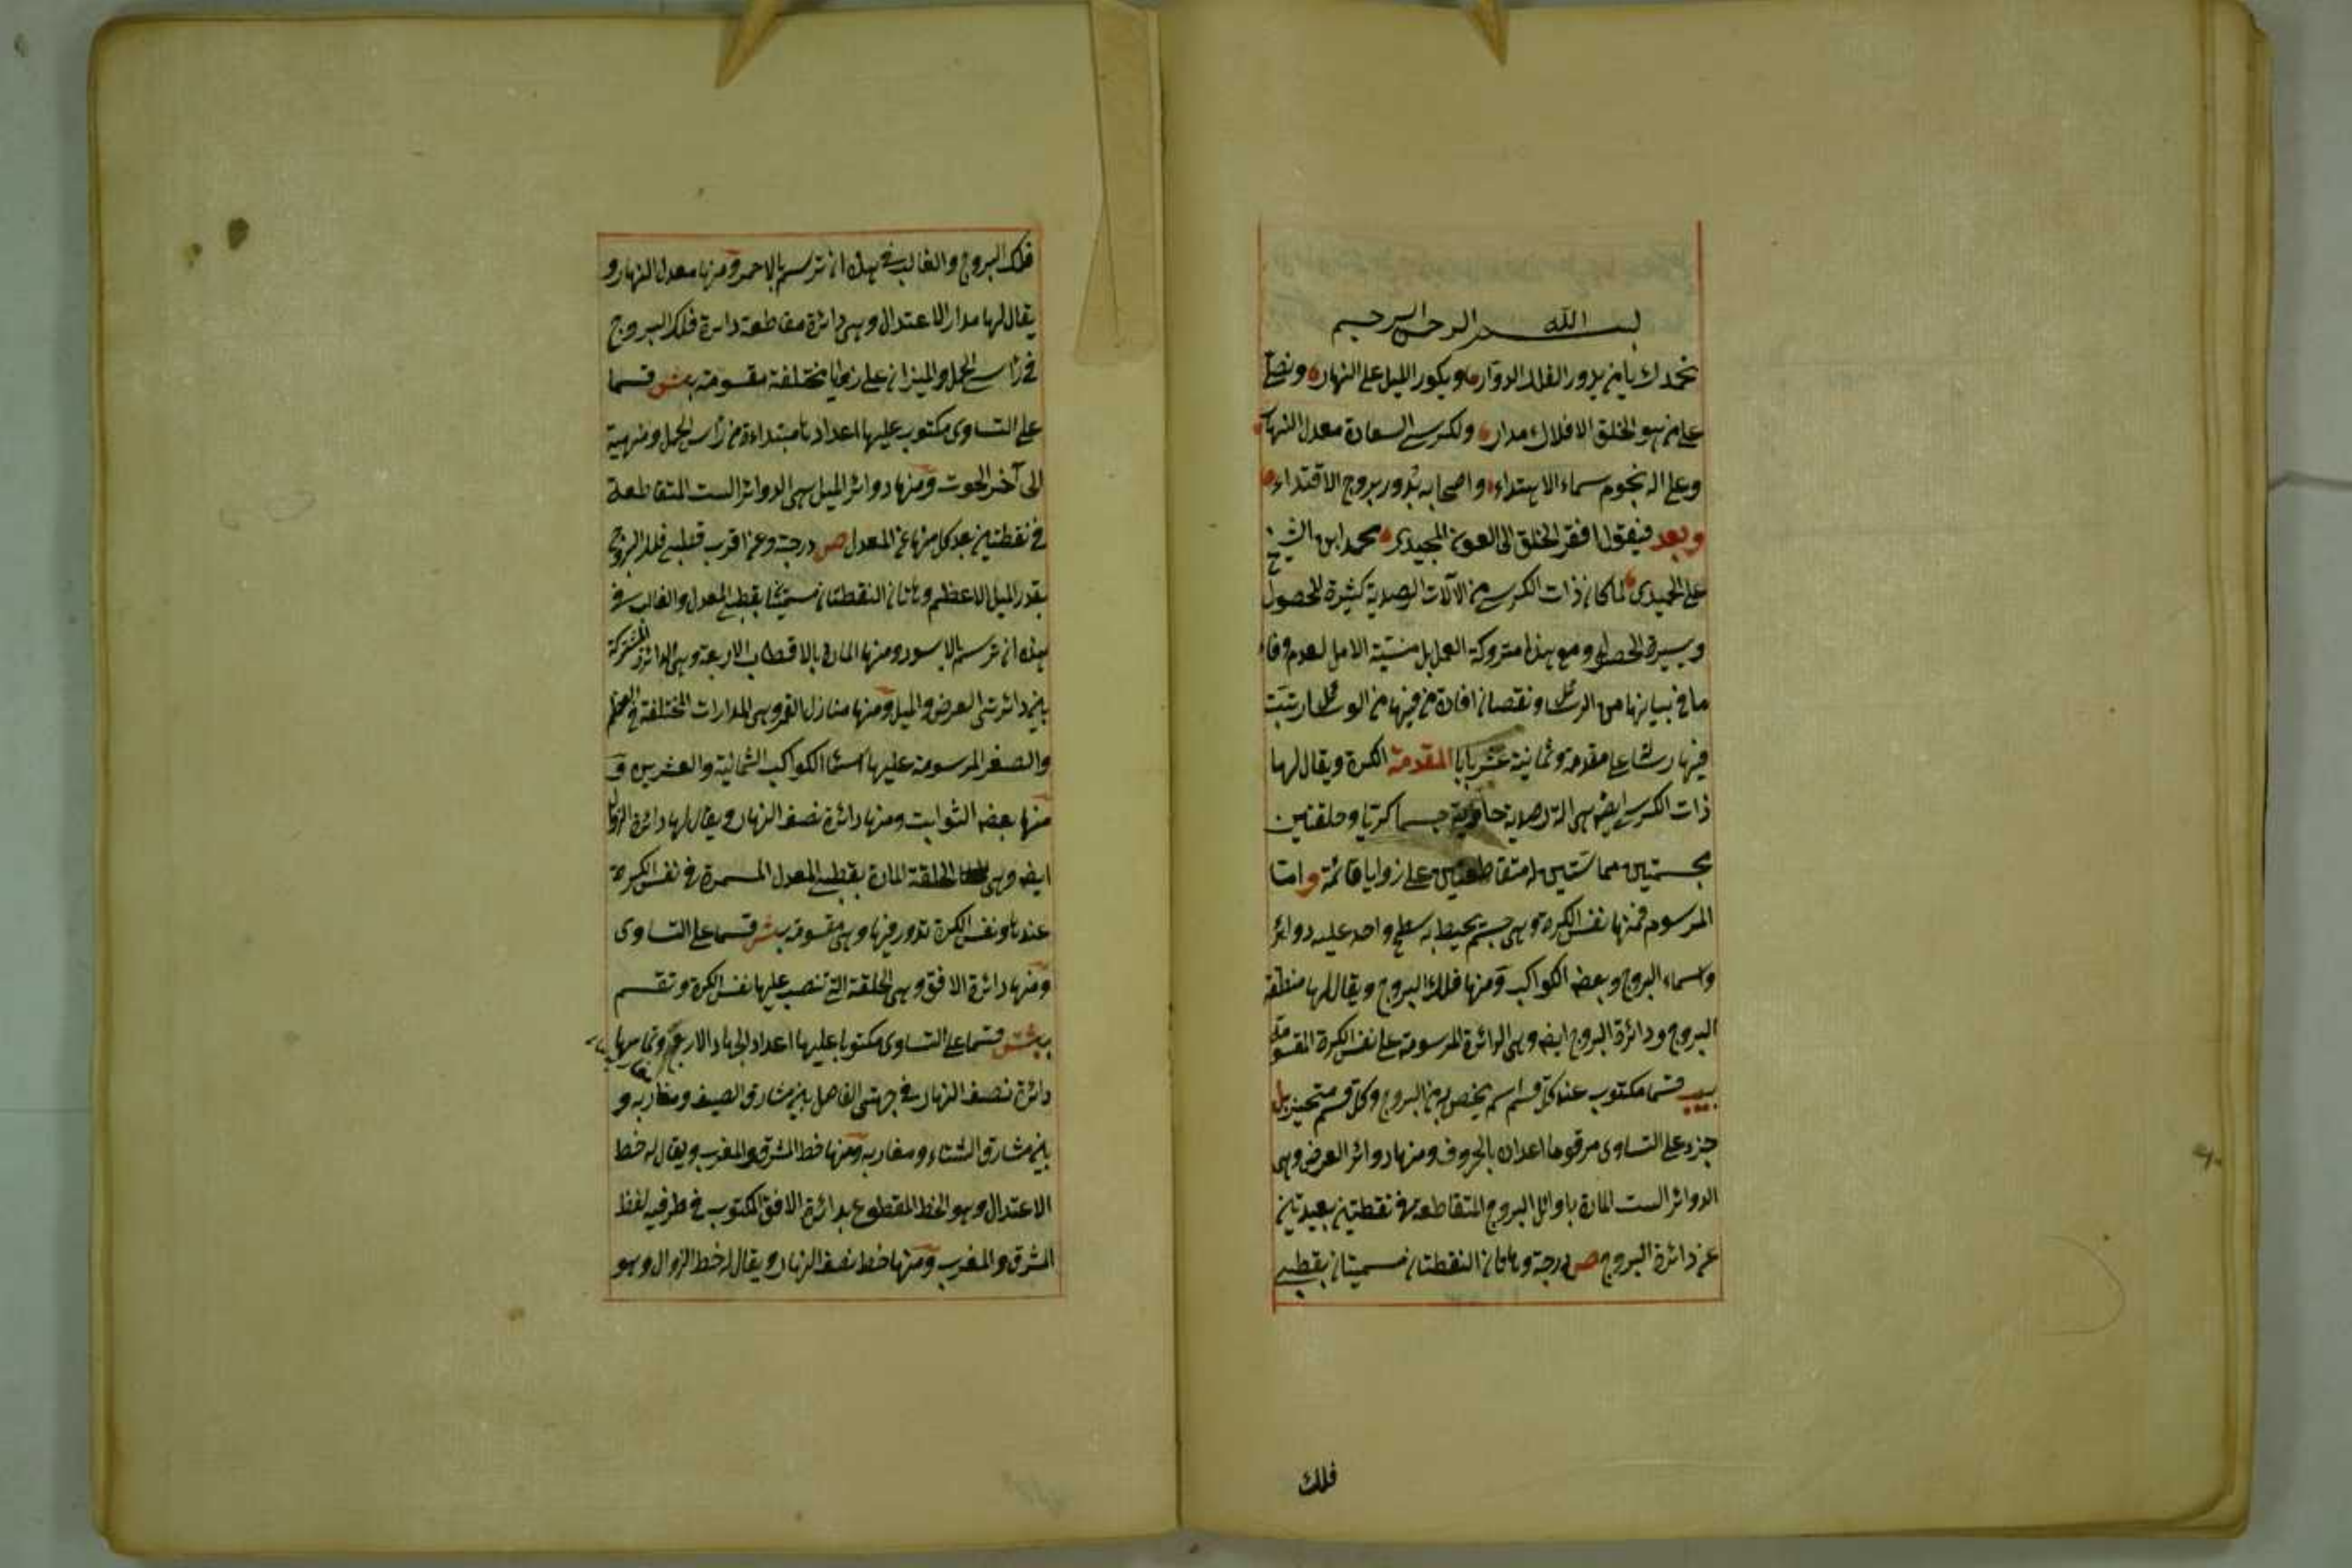 بسم الله الرحمن الرحيم
نحمدك يا من يدور الفلك الدوار ويكور الليل على النهار ونصلى
على من هو لخلق الافلاك مدار ولكرسى السعادة معدل النهار
وعلى اله نجوم سماء الاهتداء واصحابه بدور بروج الاقتداء
وبعد فيقول افقر الخلق الى العون المجيدى محمد ابن الشيخ
على الحميدى لما كان ذات الكرسى من الآلات الرصدية كثيرة المحصول
ويسيرة الحصول ومع هذا متروكة العمل بل منسية الامل لعدم وفاء
ما فى بيانها من الرسائل ونقصان افادة من فيها من الوسائل رتبت
فيها رسالة على مقدمة وثمانية عشر بابا المقدمة الكرة ويقال لها
ذات الكرسى ايضا هى الة رصدية حاوية جسما كريا وحلقتين
مجسمتين مماستين متقاطعتين على زوايا قائمة واما
المرسوم فمنها نفس الكرة وهى جسم يحيط به سطح واحد عليه دوائر
واسماء البروج وبعض الكواكب ومنها فلك البروج ويقال لها منطقة
البروج ودائرة البروج ايضا وهى الدائرة المرسومة على نفس الكرة المقسومة
بيب قسما مكتوب عند كل قسم اسم يخص به من البروج وكل قسم متجز بل
جزء على التساوى مرقوما اعداده بالحروف ومنها دوائر العرض وهى
الدوائر الست المارة باوائل البروج المتقاطعة فى نقطتين بعيدتين
عن دائرة البروج ص درجة وهاتان النقطتان مسميتان بقطبى
فلك
فلك البروج والغالب فى هذه ان ترسم بالاحمر ومنها معدل النهار و
يقال لها مدار الاعتدال وهى دائرة مقاطعة دائرة فلك البروج
فى رأس الحمل والميزان على زوايا مختلفة مقسومة بشس قسما
على التساوى مكتوب عليها اعدادها مبتداءة من رأس الحمل ومنتهية
الى آخر الحوت ومنها دوائر الميل هى الدوائر الست المتقاطعة
فى نقطتين بعد كل منها عن المعدل ص درجة وعن اقرب قطبى فلك البروج
بقدر الميل الاعظم وهاتان النقطتان مسميتان بقطبى المعدل والغالب فى
هذه ان ترسم بالاسود ومنها المارة بالاقطاب الاربعة وهى الدائرة المشتركة
بين دائرتى العرض والميل ومنها منازل القمر وهى المدارات المختلفة فى العظم
والصغر المرسومة عليها اسماء الكواكب الثمانية والعشرين و
منها بعض الثوابت ومنها دائرة نصف النهار ويقال لها دائرة الزوال
ايضا وهى الحلقة المارة بقطبى المعدل المسمرة فى نفس الكرة
عندها ونفس الكرة تدور فيها وهى مقسومة بشس قسما على التساوى
ومنها دائرة الافق وهى الحلقة التى تنصب عليها نفس الكرة وتقسم
بشس قسما على التساوى مكتوبا عليها اعداد الجهات الاربع وتماسها
دائرة نصف النهار فى جهتى الفاصل بين مشارق الصيف ومغاربه و
بين مشارق الشتاء ومغاربه ومنها خط المشرق والمغرب ويقال له خط
الاعتدال وهو الخط المقطوع بدائرة الافق المكتوب فى طرفيه لفظ
المشرق والمغرب ومنها خط نصف النهار ويقال له خط الزوال وهو